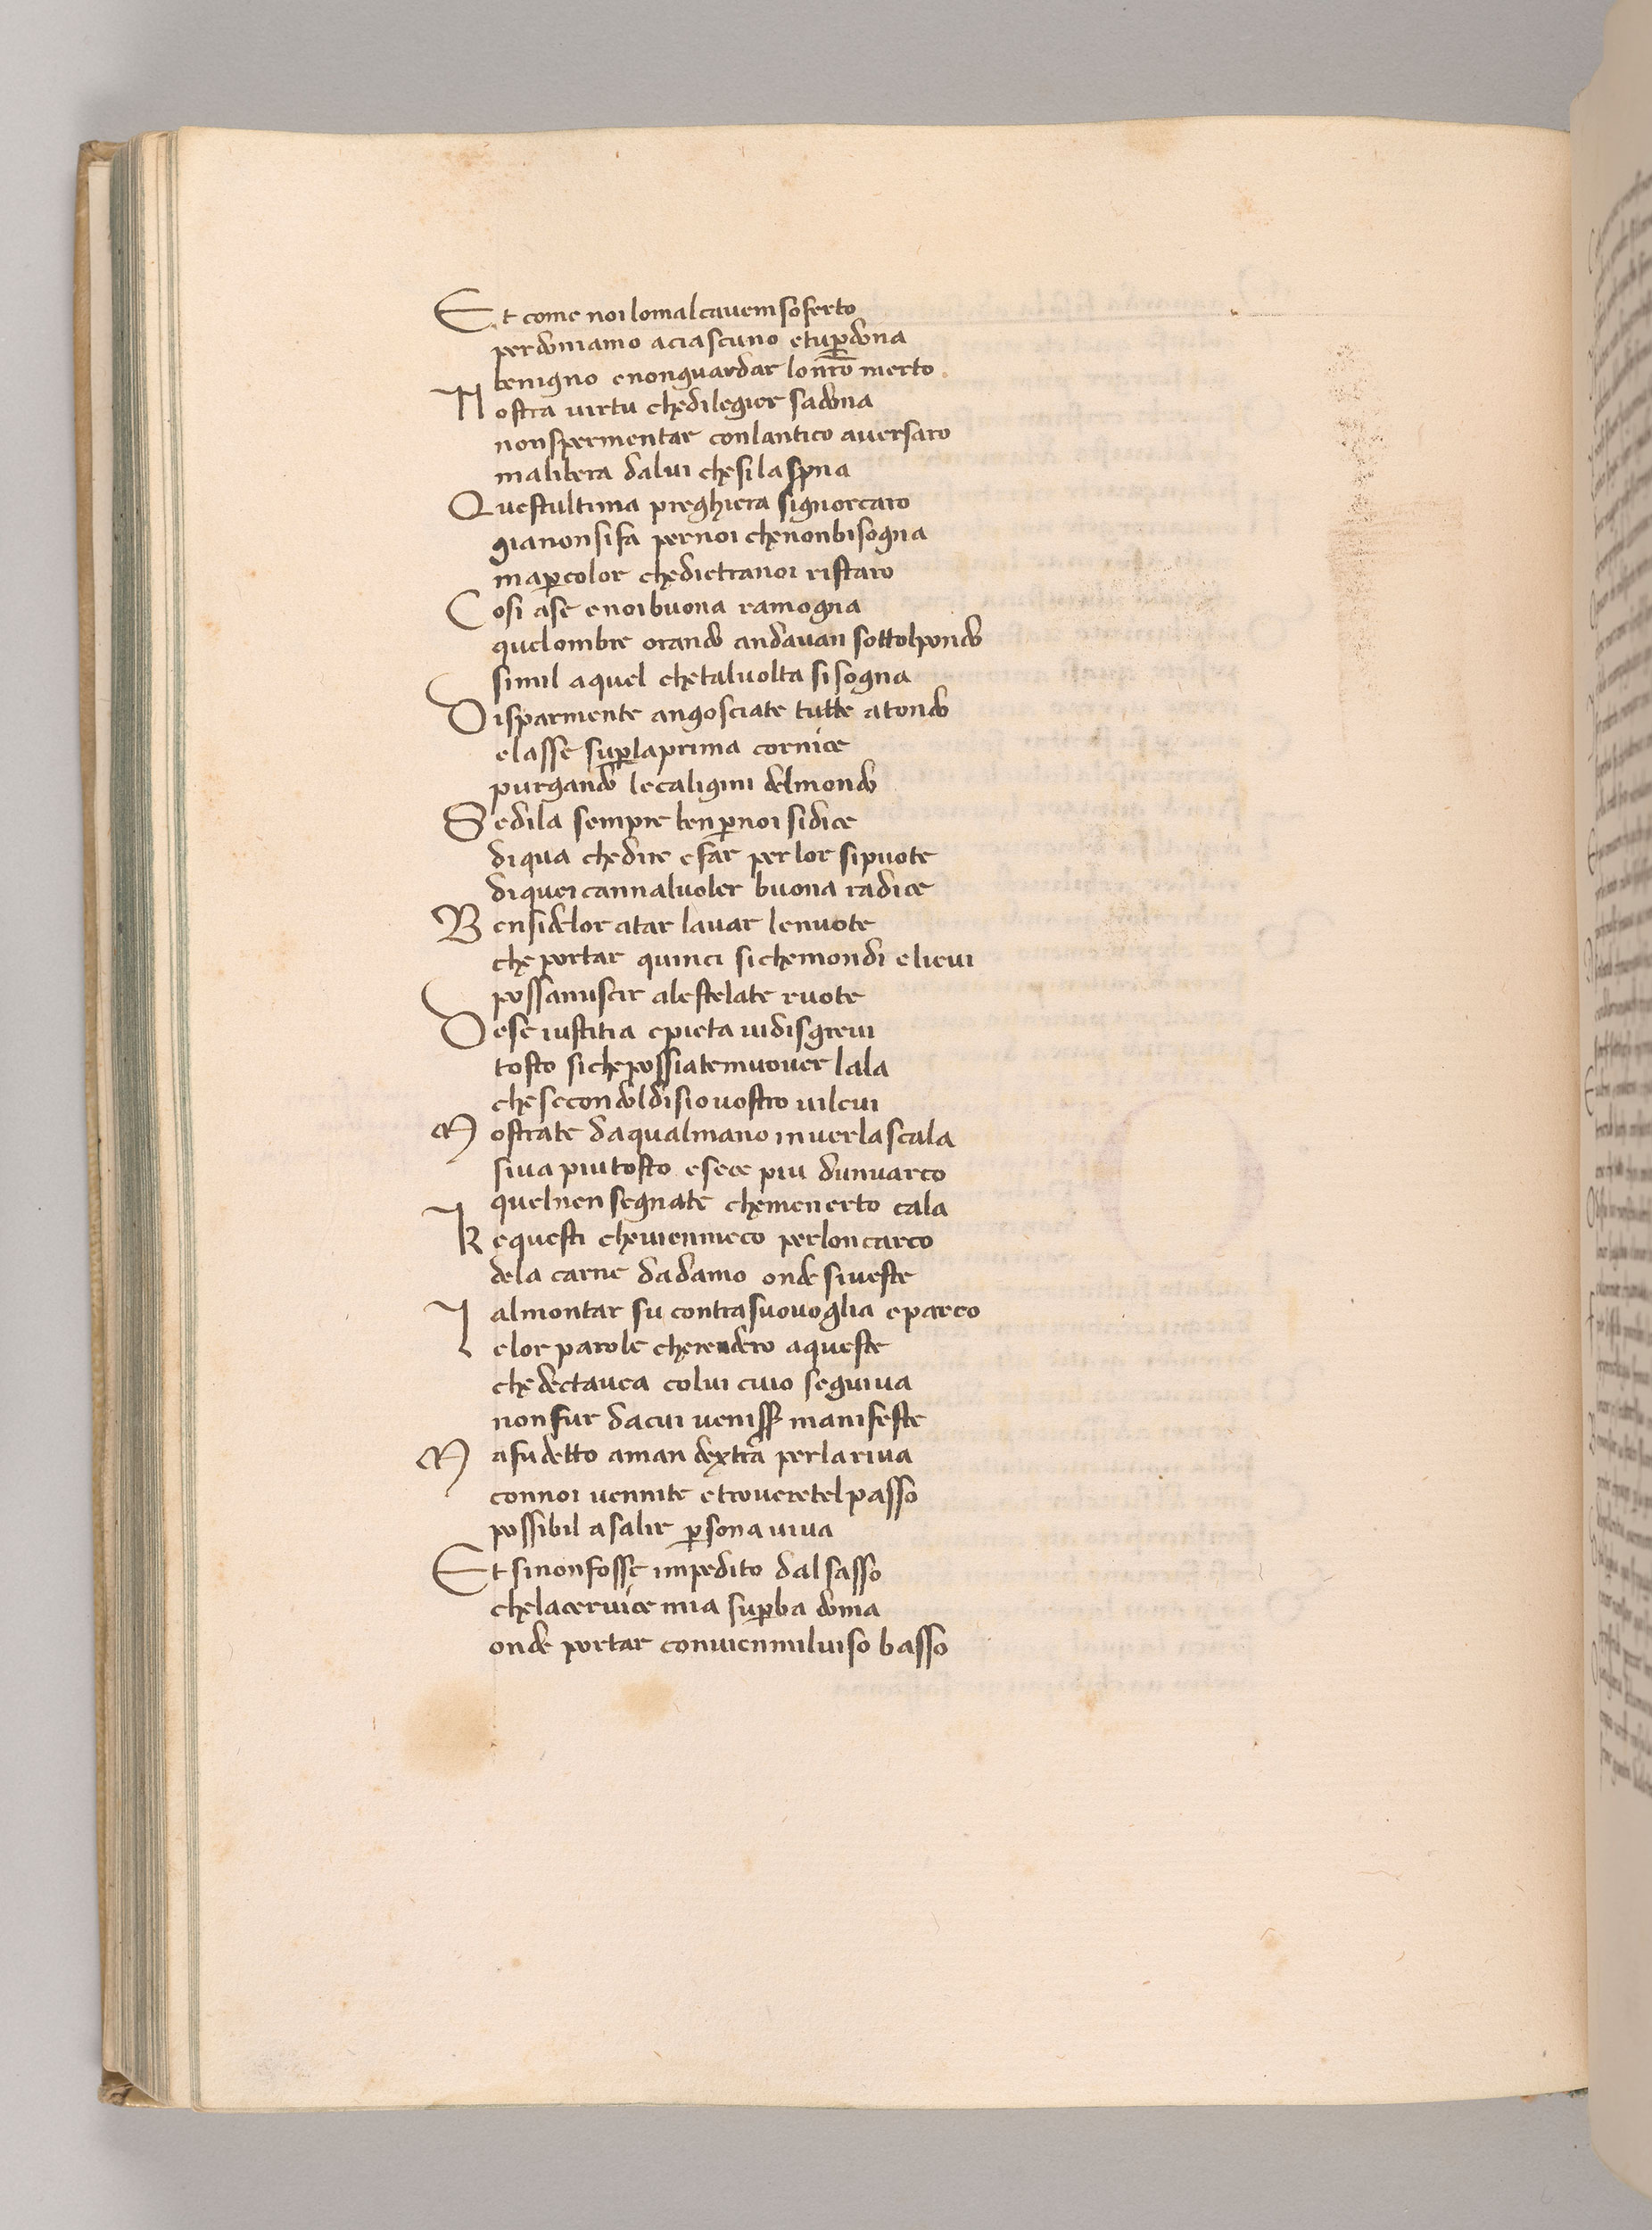 Et come noi lomalcavem soferto
perdoniamo aciascuno etup̱dona
benigno enonguardar lonr̄o merto
Nostra uirtu chedilegier sadona
nonspermentar conlantico auersaro
malibera dalui chesilasprona
Questultima preghiera signorcaro
gianonsifa pernoi chenonbisogna
map̱color chedietranoi ristaro
Cosi ase enoibuona ramogna
quelombre orando andauan sottolpondo
simil aquel chetaluolta sisogna
Disparmente angosciate tutte atondo
elasse sup̱laprima cornice
purgando lecaligini delmondo
Sedila sempre benp̱noi sidice
diqua chedire efar perlor sipuote
diqueicannaluoler buona radice
Bensidelor atar lauar lenuote
cheportar quinci sichemondi elieui
possanuscir alestelate ruote
Dese iustitia epieta uidisgreui
tosto sichepossiatemuouer lala
chesecondoldisiouostro uileui
Mostrate daqualmano inuerlascala
siua piutosto esece piu dunuarco
quelnensegnate chemenerto cala
Kequesti cheuienmeco perloncarco
dela carne dadamo onde siueste
almontar su contrasuouoglia eparco
Ielor parole cherendero aqueste
chedectauea colui cuio seguiua
nonfur dacui uenisser manifeste
Mafudetto aman dextra perlariua
connoi uennite etroueretelpasso
possibil asalir p̱sona uiua
Et sinonfosse impedito dalsasso
chelaceruice mia sup̱ba doma
onde portar conuienmiluiso basso